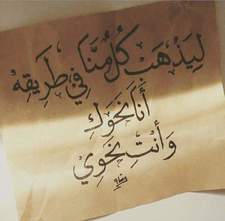 لِيَذْهَبَ كُلٌّ مِنَّا فِي طَرِيقِهِ
أَنَا نَحْوَكِ
وَأَنْتِ نَحْوِي